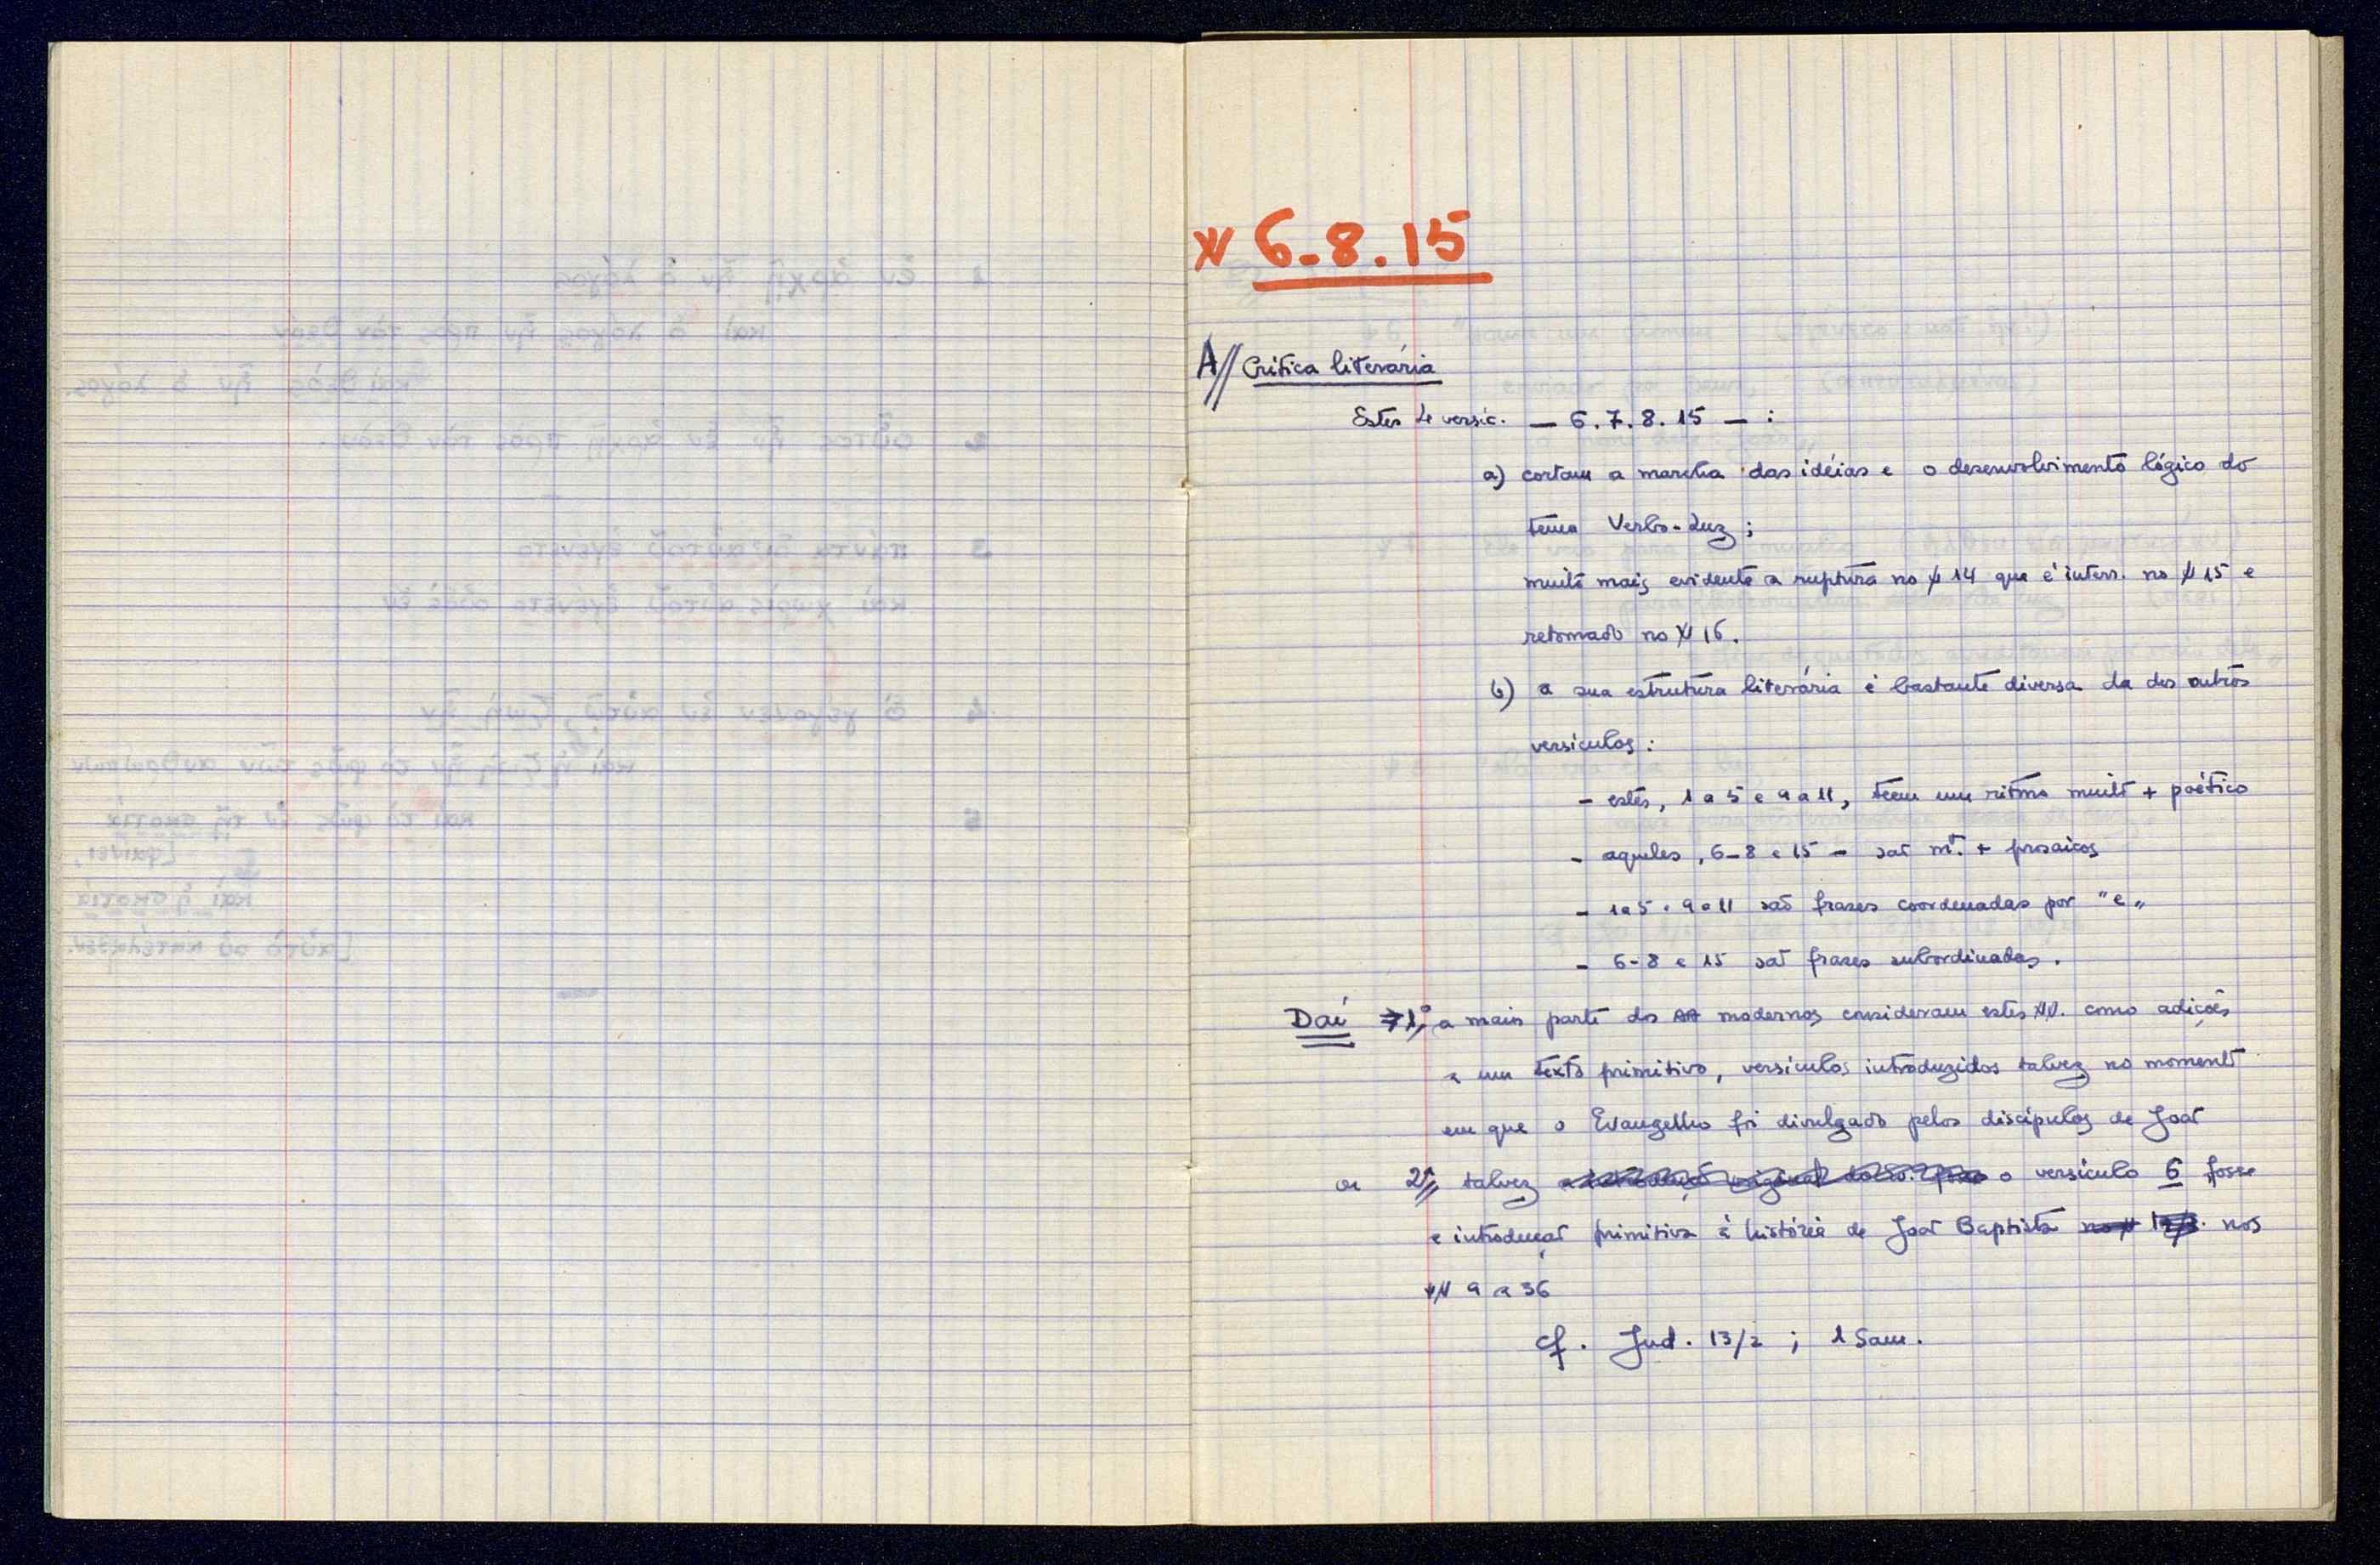 ℣ 6-8.15
A// Crítica literária
Estes 4 versíc. — 6.7.8.15 — :
a) cortam a marcha das idéias e o desenvolvimento lógico do
tema Verbo-Luz ;
muito mais evidente a ruptura no ℣ 14 que é interr. no ℣ 15 e
retomado no ℣ 16.
b) a sua estrutura literária é bastante diversa da dos outros
versículos :
- estes, 1 a 5 e 9 a 11, teem um ritmo muito + poético
- aqueles, 6-8 e 15 - são mto. + prosaicos
- 1 a 5 . 9 a 11 são frases coordenadas por "e"
- 6-8 e 15 são frases subordinadas.
Daí 1º, a mais parte dos AA modernos consideram estes ℣℣. como adições
a um texto primitivo, versículos introduzidos talvez no momento
em que o Evangelho foi divulgado pelos discípulos de João
ou 2º, talvez o versículo 6 fosse
a introdução primitiva à história de João Baptista nos
℣℣ 9 a 36
Cf. Jud. 13/2 ; 1 Sam.